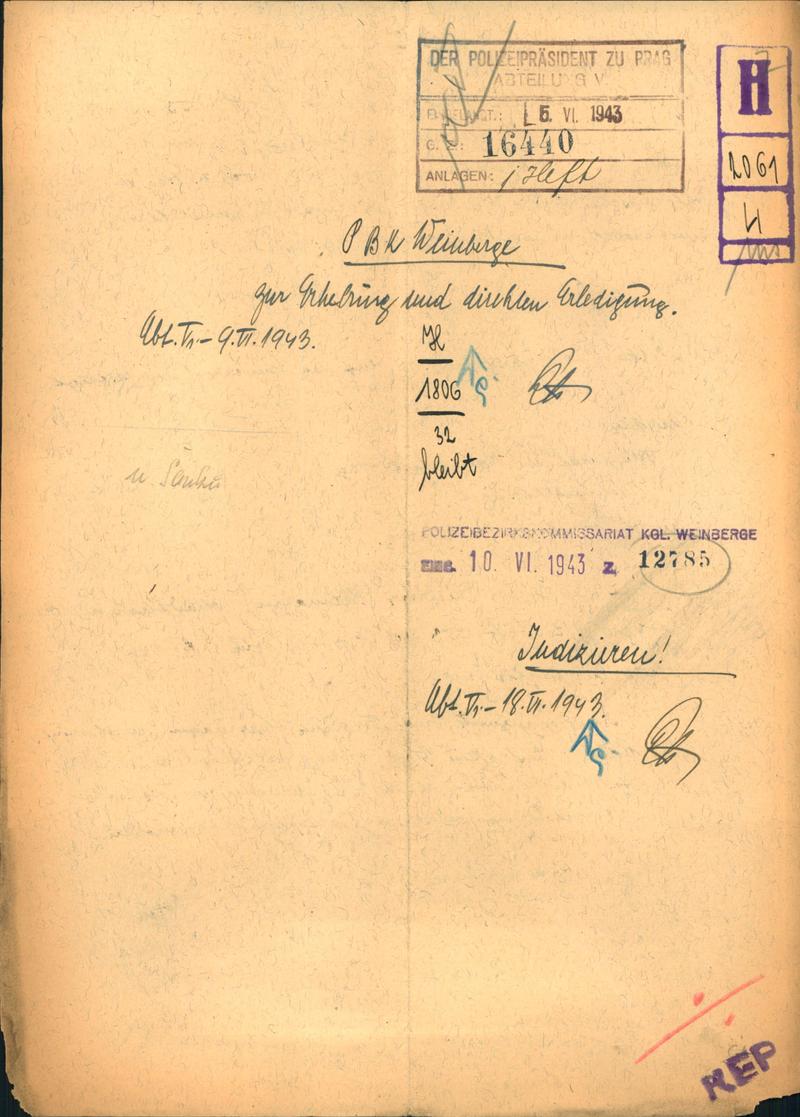 DER POLIZEIPRÄSIDENT ZU PRAG
ABTEILUNG V
EINGELANGT.: 5. VI. 1943
G. Z.: 16440
ANLAGEN: 1 Heft
H
2061
4
P B K Weinberge
zur Erhebung und direkten Erledigung.
Abt. V. – 9. VI. 1943.
H
1806
32
bleibt
POLIZEIBEZIRKSKOMMISSARIAT KGL. WEINBERGE
EING. 10. VI. 1943 Z. 12785
Indizieren!
Abt. V. – 18. VI. 1943.
REP